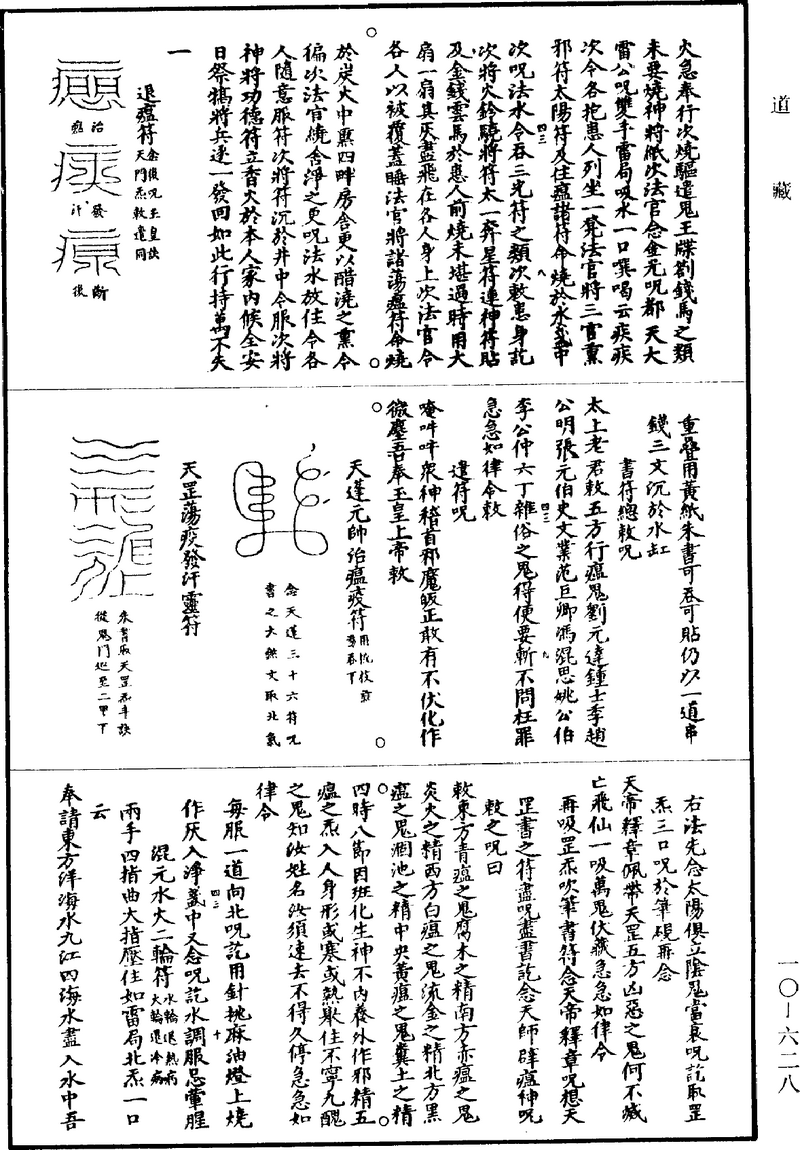 道藏
火急奉行次燒驅遣鬼王牒劄錢馬之類
未要燒神將紙次法官念金光呪都天大
雷公呪雙手雷局吸水一口噀喝云疾疾
次令各抱患人列坐一凳法官將三官熏
邪符太陽符及住瘟諸符命燒於水盞中
次呪法水令吞三光符之類次敕患身訖
次將火鈴驍將符太一奔星符連神符貼
及金錢雲馬於患人前燒未堪過時用大
扇一扇其灰盡飛在各人身上次法官令
各人以被覆蓋睡法官將諸蕩瘟符命燒
於炭火中熏四畔房舍更以醋澆之熏令
徧次法官繞舍淨之更呪法水放住令各
人隨意服符次將符沉於井中令服次將
神將功德符立香火於本人家內候全安
日祭犒將兵遂一發回如此行持萬不失
一
退瘟符
念復呪玉皇訣
天門炁敕遣同
治瘧
發汗
斷後
重疊用黃紙朱書可吞可貼仍以一道串
錢三文沉於水缸
書符總敕呪
太上老君敕五方行瘟鬼劉元達鍾士季趙
公明張元伯史文業范巨卿馮混思姚公伯
李公仲六丁雜俗之鬼得使要斬不問枉罪
急急如律令敕
遣符呪
唵吽吽眾神稽首邪魔皈正敢有不伏化作
微塵吾奉玉皇上帝敕
天蓬元帥治瘟疫符
念天蓬三十六符呪
書之大梵文取北炁
天罡蕩疫發汗靈符
朱書取天罡炁斗訣
從鬼門起至二甲下
右法先念太陽俱立陰鬼當衰呪訖取罡
炁三口呪於筆硯再念
天帝釋章佩帶天罡五方凶惡之鬼何不滅
亡飛仙一吸萬鬼伏藏急急如律令
再吸罡炁吹筆書符念天帝釋章呪想天
罡書之符盡呪盡書訖念天師辟瘟神呪
敕之呪曰
敕東方青瘟之鬼腐木之精南方赤瘟之鬼
炎火之精西方白瘟之鬼流金之精北方黑
瘟之鬼涸池之精中央黃瘟之鬼糞土之精
四時八節因班化生神不內養外作邪精五
瘟之炁入人身形或寒或熱聚住不寧九醜
之鬼知汝姓名汝須速去不得久停急急如
律令
每服一道向北呪訖用針挑麻油燈上燒
作灰入淨盞中又念呪訖水調服忌葷腥
混元水火二輪符
水輪退熱病
火輪退冷病
兩手四指曲大指壓住如雷局北炁一口
云
奉請東方洋海水九江四海水盡入水中吾
一〇-六二八